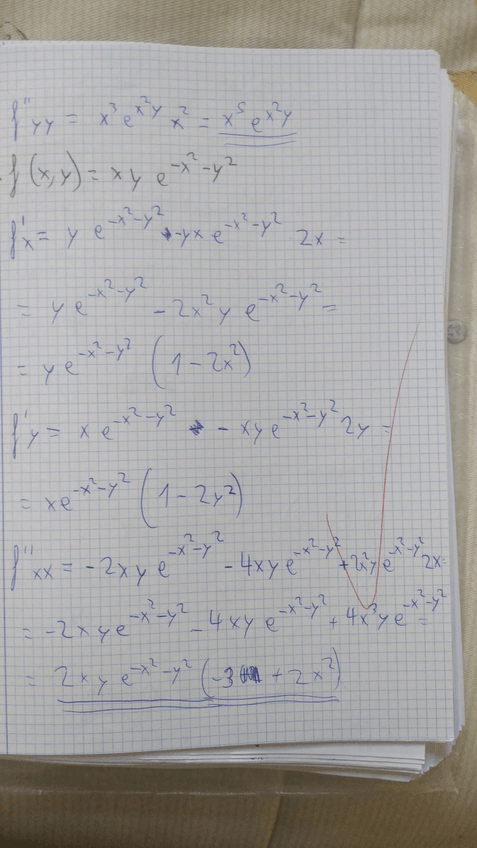 f''yy = x³e^{x²y} x² = x⁵e^{x²y}
f(x,y) = xy e^{-x²-y²}
f'x = y e^{-x²-y²} -yx e^{-x²-y²} 2x =
= y e^{-x²-y²} - 2x²y e^{-x²-y²} =
= y e^{-x²-y²} (1-2x²)
f'y = x e^{-x²-y²} - xy e^{-x²-y²} 2y =
= xe^{-x²-y²} (1-2y²)
f''xx = -2xy e^{-x²-y²} - 4xy e^{-x²-y²} + 2x²y e^{-x²-y²} 2x =
= -2xy e^{-x²-y²} - 4xy e^{-x²-y²} + 4x³y e^{-x²-y²} =
= 2xy e^{-x²-y²} (-3 + 2x²)